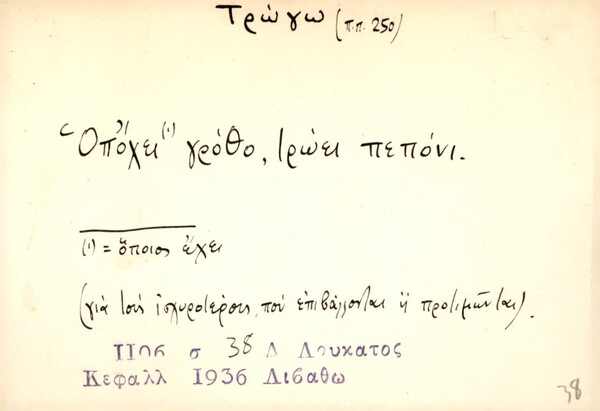 Τρώγω (π.π. 250)
Ὁπὄχει (1) γρόθο, τρώει πεπόνι.
(1) = ὅποιος ἔχει
(γιὰ τοὺς ἰσχυροτέρους, ποὺ ἐπιβάλλονται ἢ προτιμῶνται).
1106 σ 38 Δ Λουκατος
Κεφαλλ 1936 Λιβαθω
38